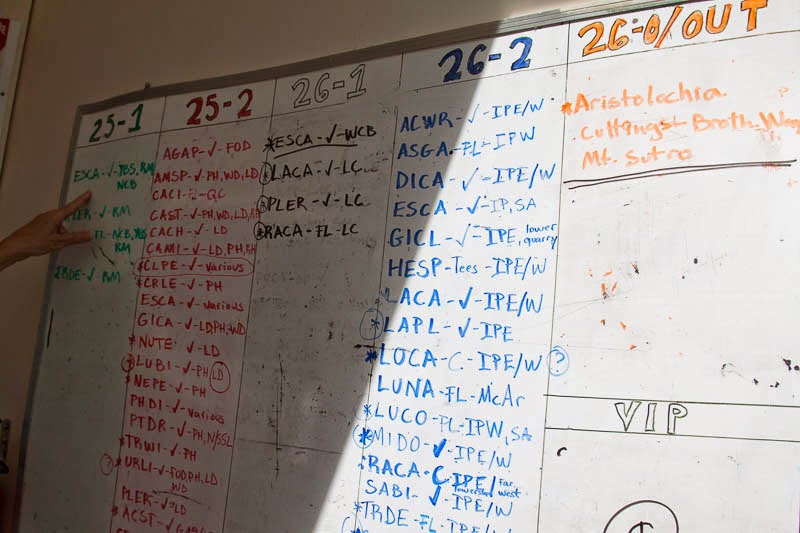 25-1
ESCA-✓-YBS, RM
NCB
PLER-✓-RM
FL-NCB, YBS
RM
TRDE-✓-RM
25-2
AGAP-✓-FOD
AMSP-✓-PH, WD, LD
CACI-FL-QC
CAST-✓-PH, WD, LD,
CACH-✓-LD
CAMI-✓-LD, PH,
*CLPE-✓-various
*CRLE-✓-PH
ESCA-✓-various
GICA-✓-LD, PH, WD
*NUTE-✓-LD
*LUBI-✓-PH LD
*NEPE-✓-PH
PHDI-✓-various
PTDR-✓-PH, N/SSL
*TRWI-✓-PH
?*URLI-✓-FOD, PH, LD
WD
PLER-✓-LD
*ACST-✓-
26-1
*ESCA-✓-WCB
*LACA-✓-LC
*PLER-✓-LC
*RACA-FL-LC
26-2
ACWR-✓-IPE/W
ASGA-FL-IPW
DICA-✓-IPE/W
ESCA-✓-IP, SA
GICL-✓-IPE, lower quarry
HESP-Tees-IPE/W
LACA-✓-IPE/W
*LAPL-✓-IPE
*LOCA-C-IPE/W ?
LUNA-FL-McAr
*LUCO-FL-IPW, SA
*MIDO-✓-IPE/W
RACA-C-IPE/far west
SABI-✓-IPE/W
*TRDE-FL-IPE/W
26-0/OUT
*Aristolochia
Cuttings-Broth.
Mt. Sutro
VIP